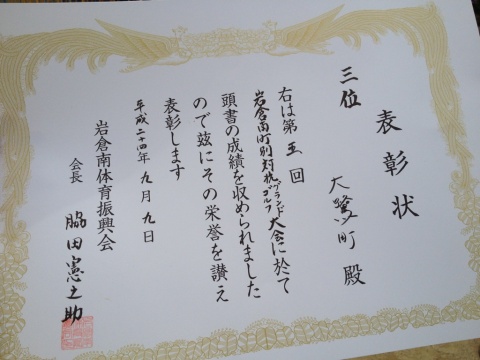 表彰状
三位
大鷺町 殿
右は第五回
岩倉南町別対抗グランドゴルフ大会に於て
頭書の成績を収められました
ので玆にその栄誉を讃え
表彰します
平成二十四年九月九日
岩倉南体育振興会
会長 脇田憲之助